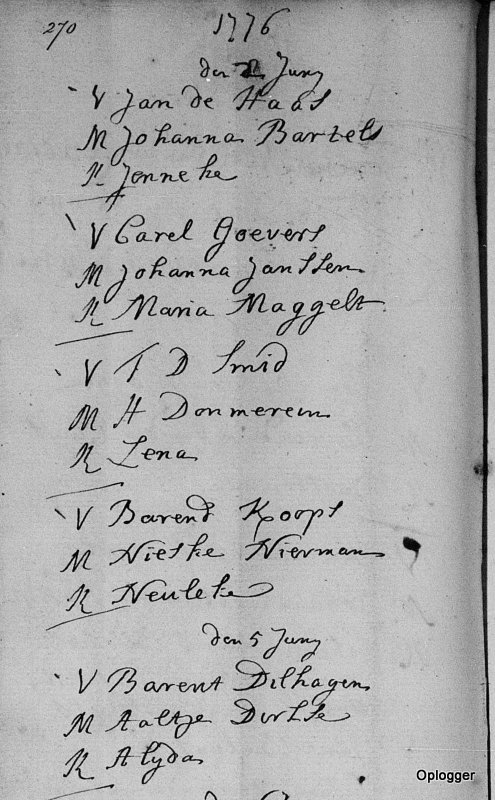 270
1776
den 2 Juny
V Jan de Haas
M Johanna Bartels
K Jenneke
V Carel Goevers
M Johanna Janssen
K Maria Maggelt
V F D Smid
M H Donmerein
K Lena
V Barend Koops
M Nieske Nierman
K Neuleke
den 5 Juny
V Barent Dilhagen
M Aaltje Dorhse
K Alyda
Oplogger